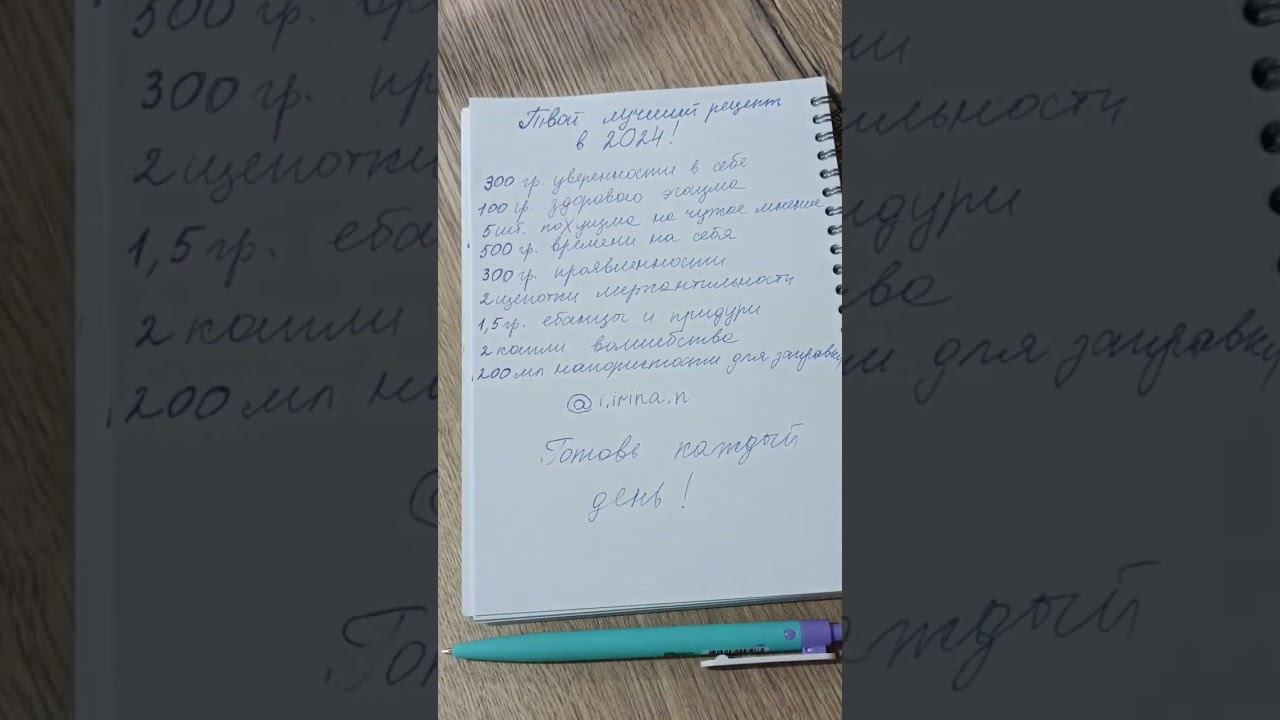 Твой лучший рецепт
в 2024!
300 гр. уверенности в себе
100 гр. здорового эгоизма
5 шт. похуизма на чужое мнение
500 гр. времени на себя
300 гр. проявленности
2 щепотки меркантильности
1,5 гр. ебанцы и придури
2 капли волшебства
200 мл напористости для заправки
@i.irina.n
Готовь каждый
день!